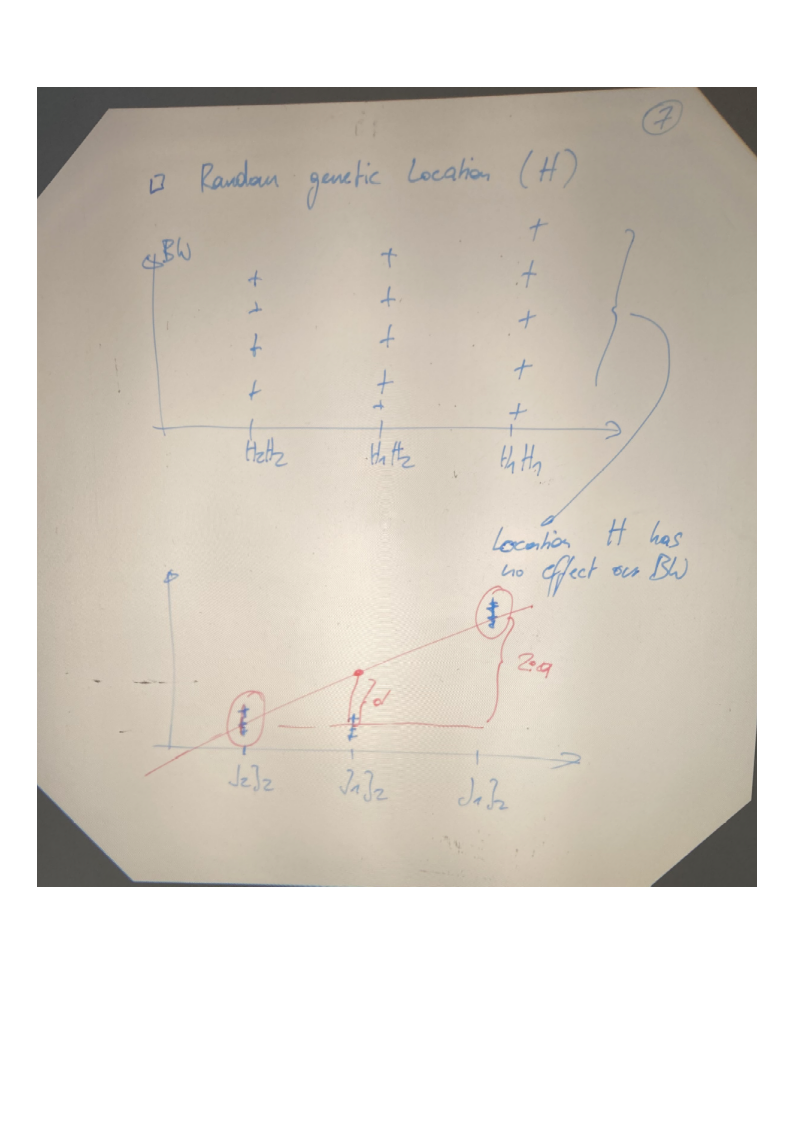 7
Random genetic Location (H)
BW
H2H2 H1H2 H1H1
Location H has
no effect on BW
2·a
d
J2J2 J1J2 J1J2